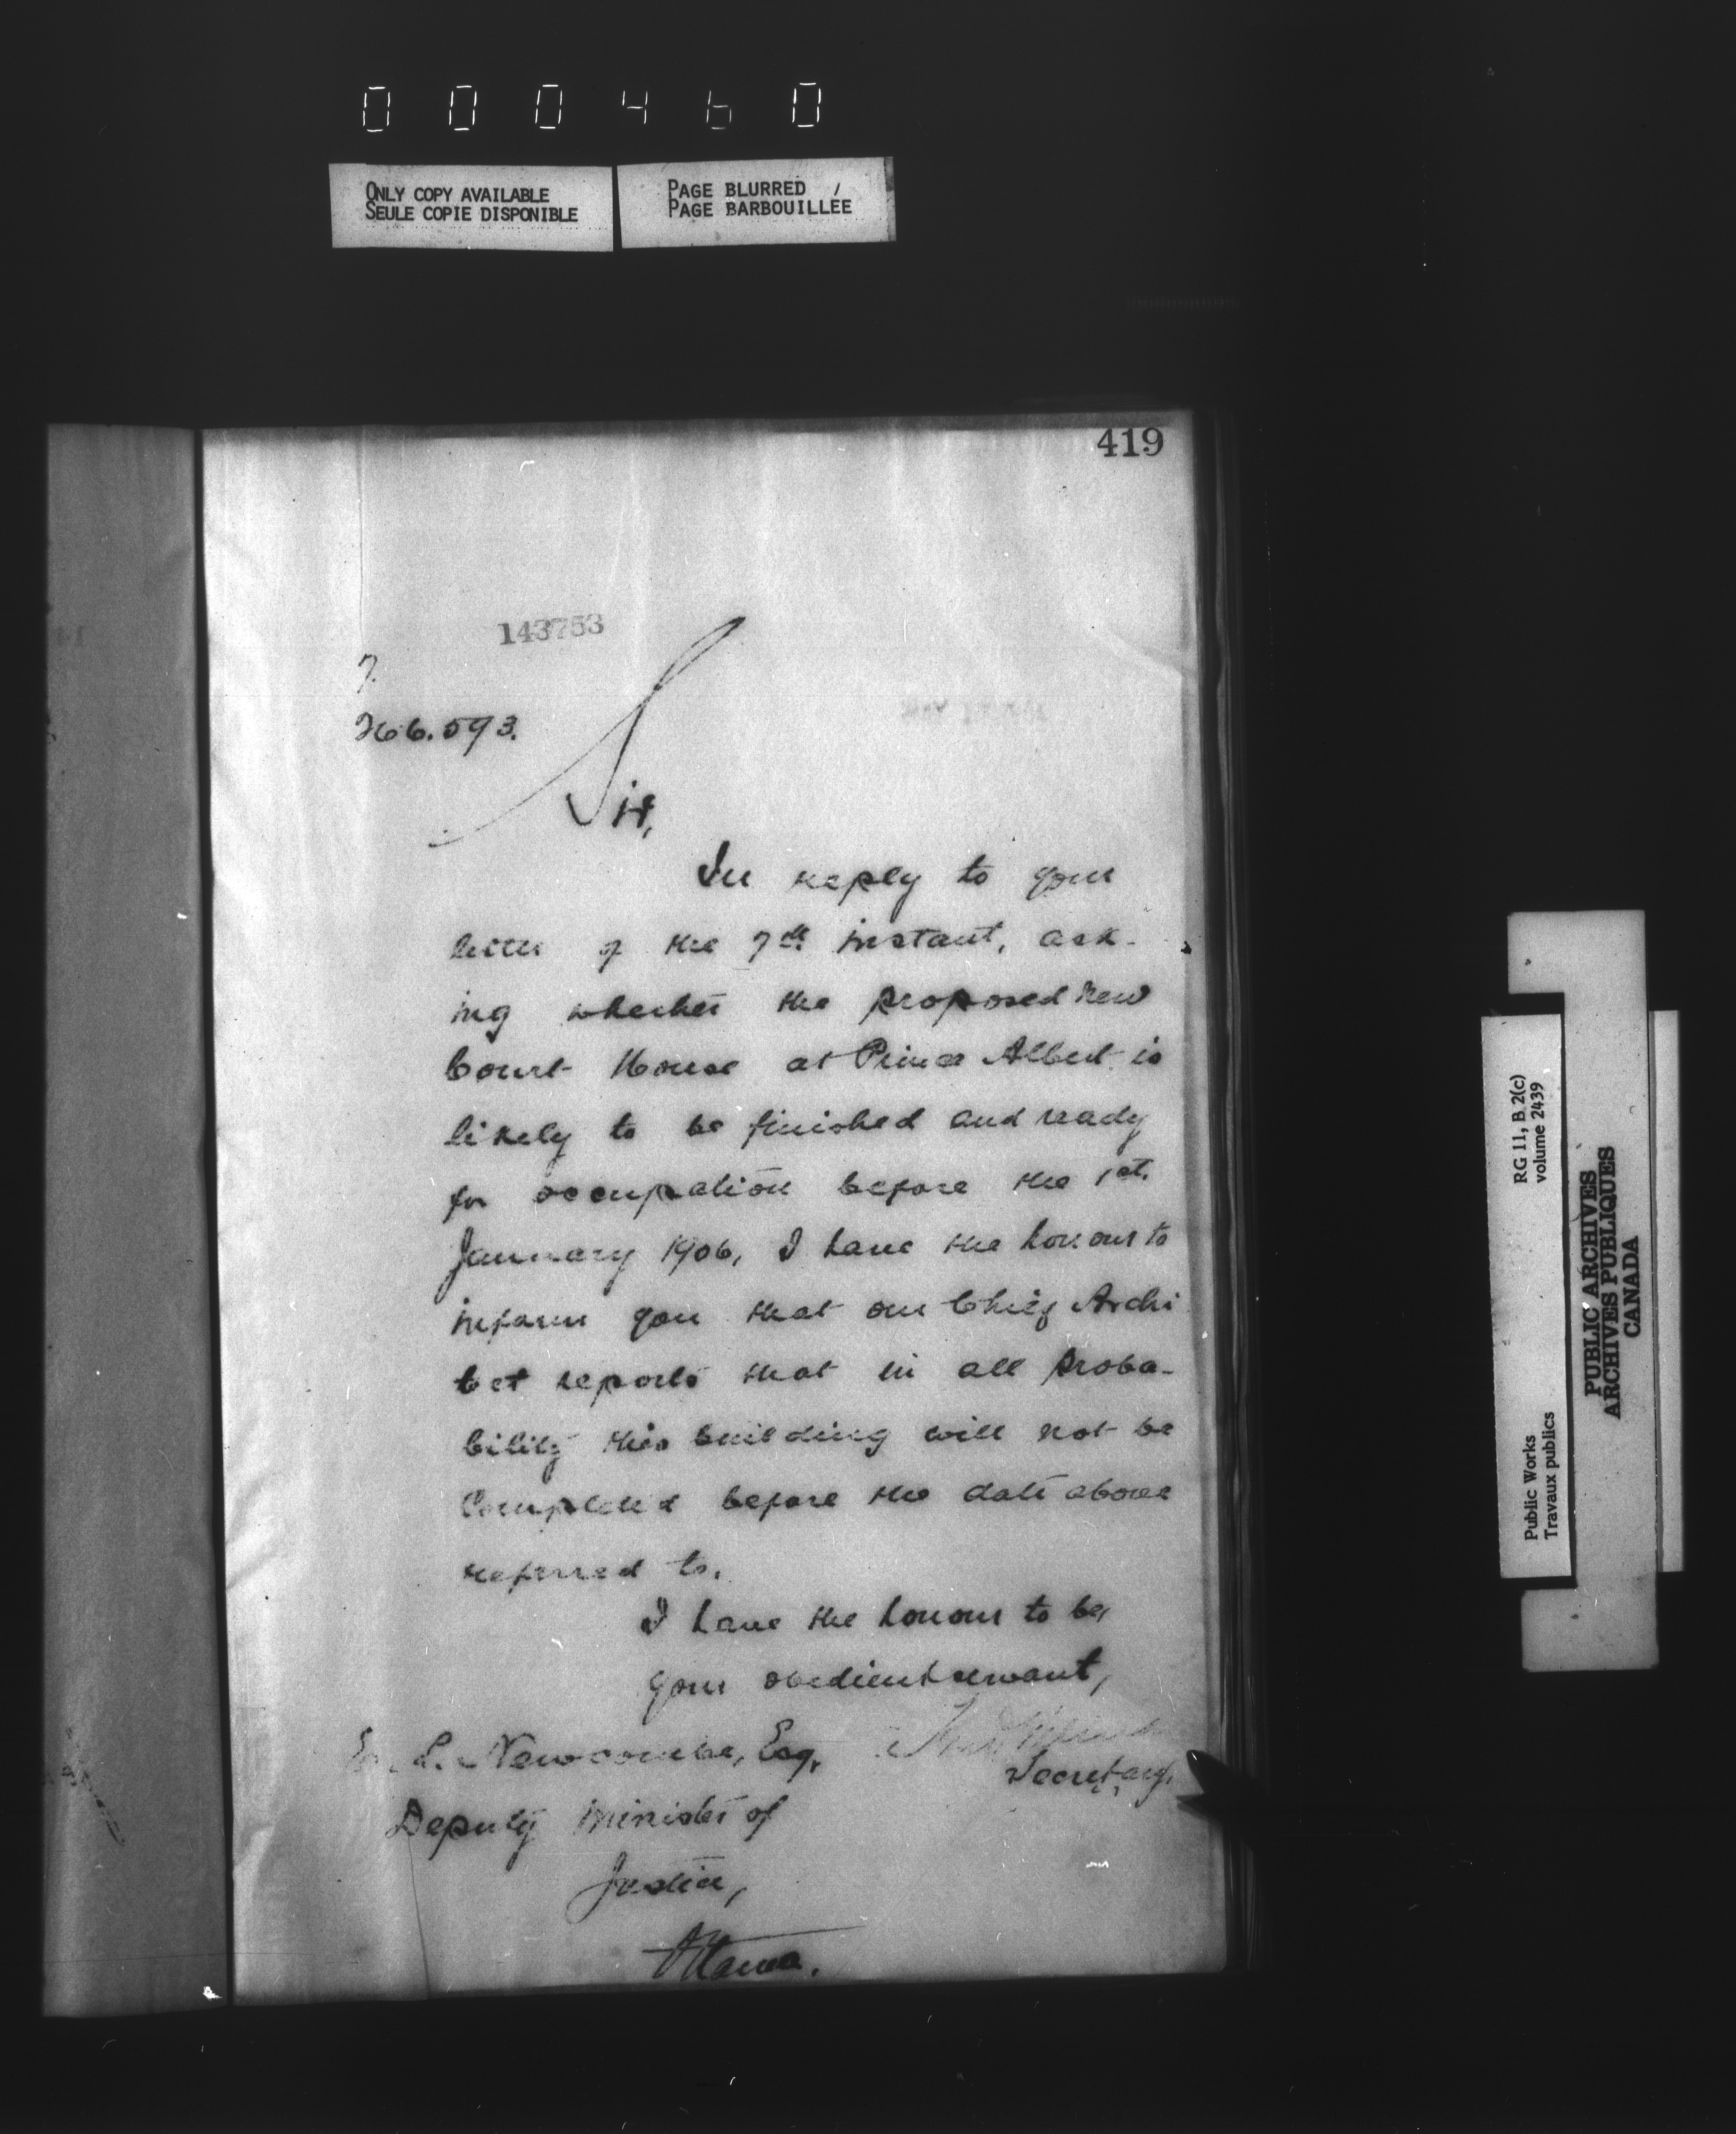 000460
ONLY COPY AVAILABLE
SEULE COPIE DISPONIBLE
PAGE BLURRED /
PAGE BARBOUILLÉE
419
143753
266.593.
Sir,
In reply to your
letter of the 7th instant, ask-
ing whether the proposed new
Court House at Prince Albert is
likely to be finished and ready
for occupation before the 1st.
January 1906, I have the honour to
inform you that our Chief Archi
tect reports that in all proba-
bility this building will not be
Completed before the date above
referred to.
I have the honour to be,
your obedient servant,
Secretary.
L. Newcombe, Esq,
Deputy Minister of
Justice,
Ottawa.
Public Works
Travaux publics
RG 11, B 2(c)
volume 2439
PUBLIC ARCHIVES
ARCHIVES PUBLIQUES
CANADA